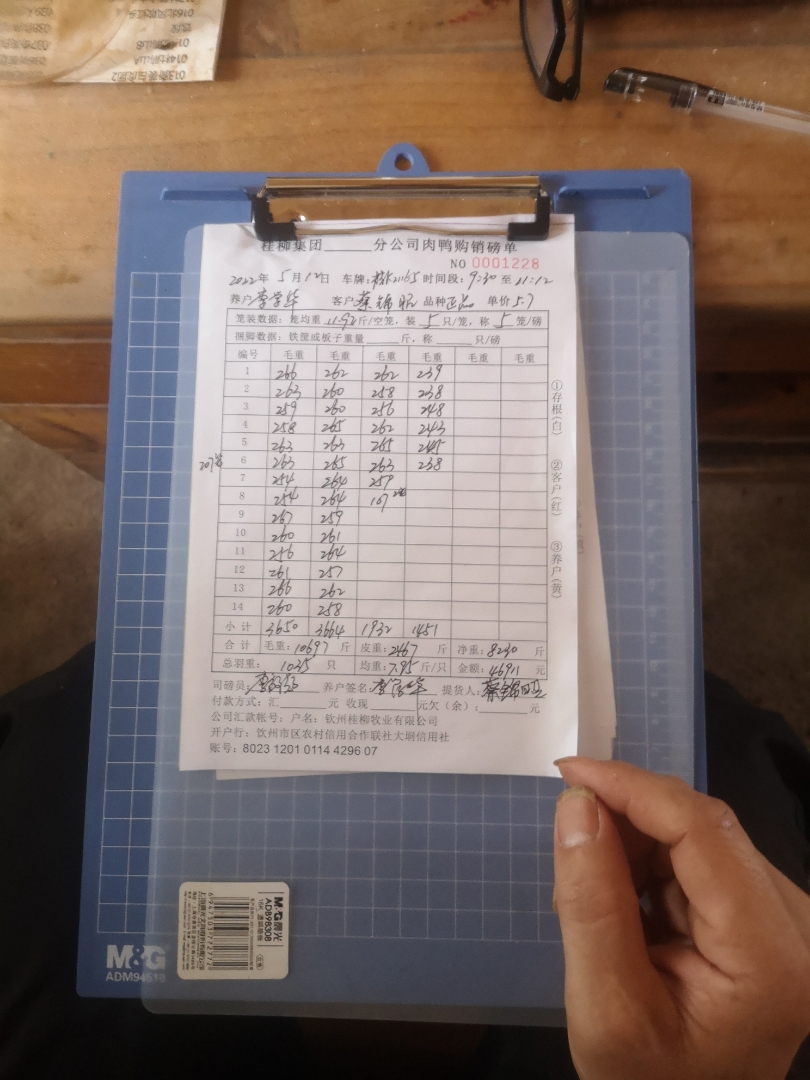 桂柳集团______分公司肉鸭购销磅单
NO 0001228
2022年 5月12日 车牌: 时间段: 9:30 至 11:12
养户 李学华 客户 蔡锦 品种 正品 单价 5.7
笼装数据: 笼均重 11.92 斤/空笼, 装 5 只/笼, 称 5 笼/磅
捆脚数据: 铁筐或板子重量______斤, 称______只/磅
编号 毛重 毛重 毛重 毛重 毛重 毛重
1 266 262 262 239
2 263 260 258 238
3 259 260 256 248
4 258 265 262 243
5 263 263 265 245
6 263 265 263 238
207笼
7 254 264 259
8 254 264 107 2笼
9 267 259
10 260 261
11 256 264
12 261 257
13 266 262
14 260 258
小计 3650 3664 1932 1451
合计 毛重: 10697 斤 皮重: 2467 斤 净重: 8230 斤
总羽重: 1035 只 均重: 7.95 斤/只 金额: 46911 元
司磅员: 养户签名: 李学华 提货人: 蔡锦
付款方式: 汇______元 收现______元欠(余):______元
公司汇款帐号: 户名: 钦州桂柳牧业有限公司
开户行: 钦州市区农村信用合作联社大垌信用社
账号: 8023 1201 0114 4296 07
①存根(白)
②客户(红)
③养户(黄)
M&G晨光
ADB98308
M&G